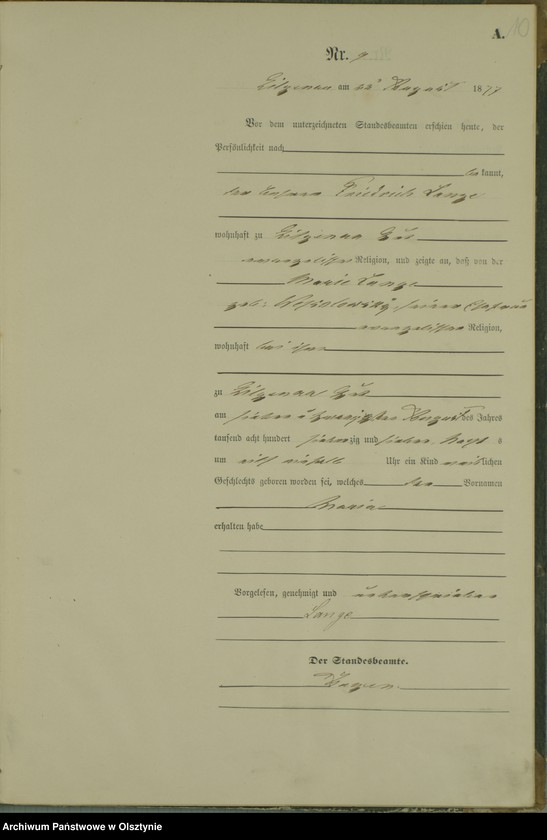 A. 10
Nr. 9
am 22 August 1877
Vor dem unterzeichneten Standesbeamten erschien heute, der
Persönlichkeit nach
be kannt,
Friedrich Lange
wohnhaft zu Gut
evangelischer Religion, und zeigte an, daß von der
Marie Lange
geb: seiner Ehefrau
evangelischer Religion,
wohnhaft bei ihm
zu Gut
am August des Jahres
tausend acht hundert siebenzig und sieben s
um Uhr ein Kind weiblichen
Geschlechts geboren worden sei, welches den Vornamen
Maria
erhalten habe
Vorgelesen, genehmigt und unterschrieben
Lange
Der Standesbeamte.
Archiwum Państwowe w Olsztynie